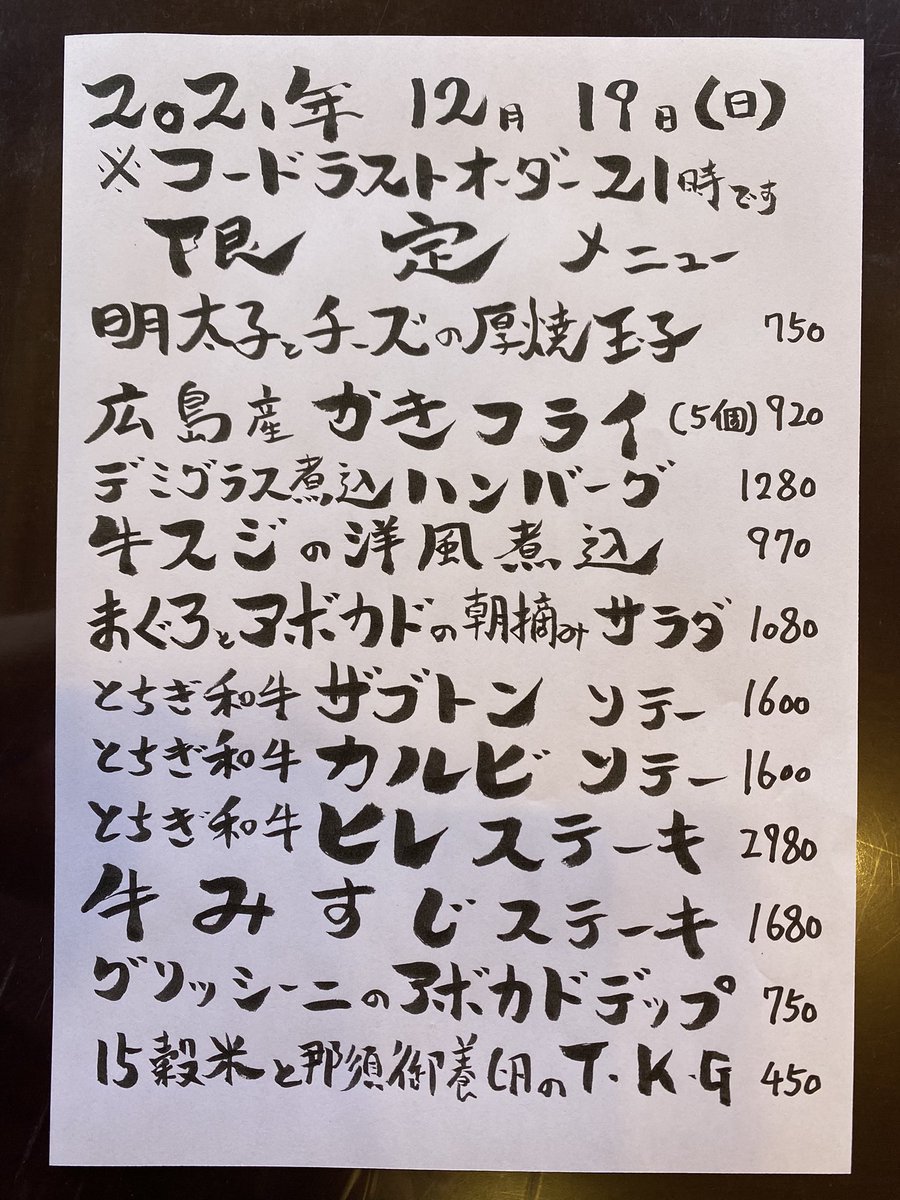 2021年 12月 19日(日)
※フードラストオーダー21時です
限定メニュー
明太子とチーズの厚焼玉子 750
広島産かきフライ(5個)920
デミグラス煮込ハンバーグ 1280
牛スジの洋風煮込 970
まぐろとアボカドの朝摘みサラダ 1080
とちぎ和牛ザブトンソテー 1600
とちぎ和牛カルビソテー 1600
とちぎ和牛ヒレステーキ 2980
牛みすじステーキ 1680
グリッシーニのアボカドデップ 750
15穀米と那須御養卵のT.K.G 450